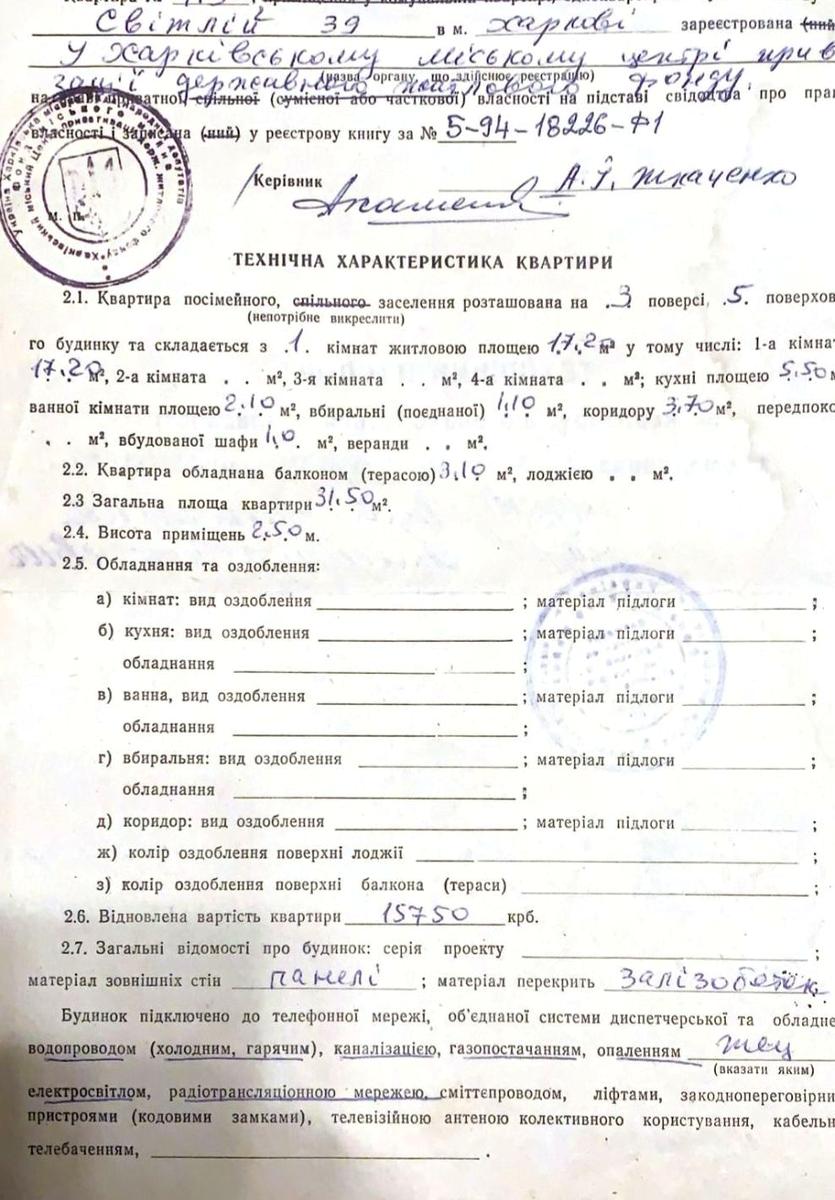 Світлій 39 в м. Харкові зареєстрована (ний)
у Харківському міському центрі прив
зації державного житлового фонду
(назва органу, що здійснює реєстрацію)
на приватної спільної (сумісної або часткової) власності на підставі свідоцтва про прав
власності і записана (ний) у реєстрову книгу за № 5-94-18226-Ф1
Керівник А. І. Ткаченко
М. П.
ТЕХНІЧНА ХАРАКТЕРИСТИКА КВАРТИРИ
2.1. Квартира посімейного, спільного заселення розташована на 3 поверсі 5 поверхов
(непотрібне викреслити)
го будинку та складається з 1 кімнат житловою площею 17.20 м² у тому числі: 1-а кімнат
17.20 м², 2-а кімната . . м², 3-я кімната . . м², 4-а кімната . . м²; кухні площею 5.50 м
ванної кімнати площею 2.10 м², вбиральні (поєднаної) 1.10 м², коридору 3.70 м², передпоко
. . м², вбудованої шафи 1.0 . м², веранди . . м².
2.2. Квартира обладнана балконом (терасою) 3.10 м², лоджією . . м².
2.3 Загальна площа квартири 31.50 м².
2.4. Висота приміщень 2.50 м.
2.5. Обладнання та оздоблення:
а) кімнат: вид оздоблення ; матеріал підлоги ;
б) кухня: вид оздоблення ; матеріал підлоги ;
обладнання ;
в) ванна, вид оздоблення ; матеріал підлоги ;
обладнання ;
г) вбиральня: вид оздоблення ; матеріал підлоги ;
обладнання ;
д) коридор: вид оздоблення ; матеріал підлоги ;
ж) колір оздоблення поверхні лоджії ;
з) колір оздоблення поверхні балкона (тераси) ;
2.6. Відновлена вартість квартири 15750 крб.
2.7. Загальні відомості про будинок: серія проекту ;
матеріал зовнішніх стін панелі ; матеріал перекрить
Будинок підключено до телефонної мережі, об'єднаної системи диспетчерської та обладне
водопроводом (холодним, гарячим), каналізацією, газопостачанням, опаленням тец
(вказати яким)
електросвітлом, радіотрансляційною мережею, сміттєпроводом, ліфтами, закоднопереговірни
пристроями (кодовими замками), телевізійною антеною колективного користування, кабельн
телебаченням, .